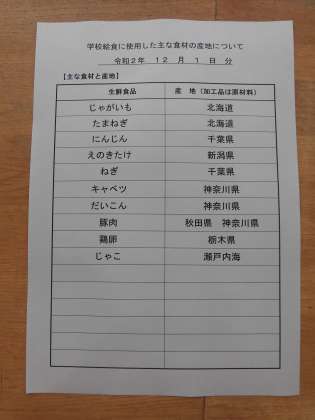 学校給食に使用した主な食材の産地について
令和2年 12 月 1 日 分
【主な食材と産地】
生鮮食品 産 地（加工品は原材料）
じゃがいも 北海道
たまねぎ 北海道
にんじん 千葉県
えのきたけ 新潟県
ねぎ 千葉県
キャベツ 神奈川県
だいこん 神奈川県
豚肉 秋田県 神奈川県
鶏卵 栃木県
じゃこ 瀬戸内海